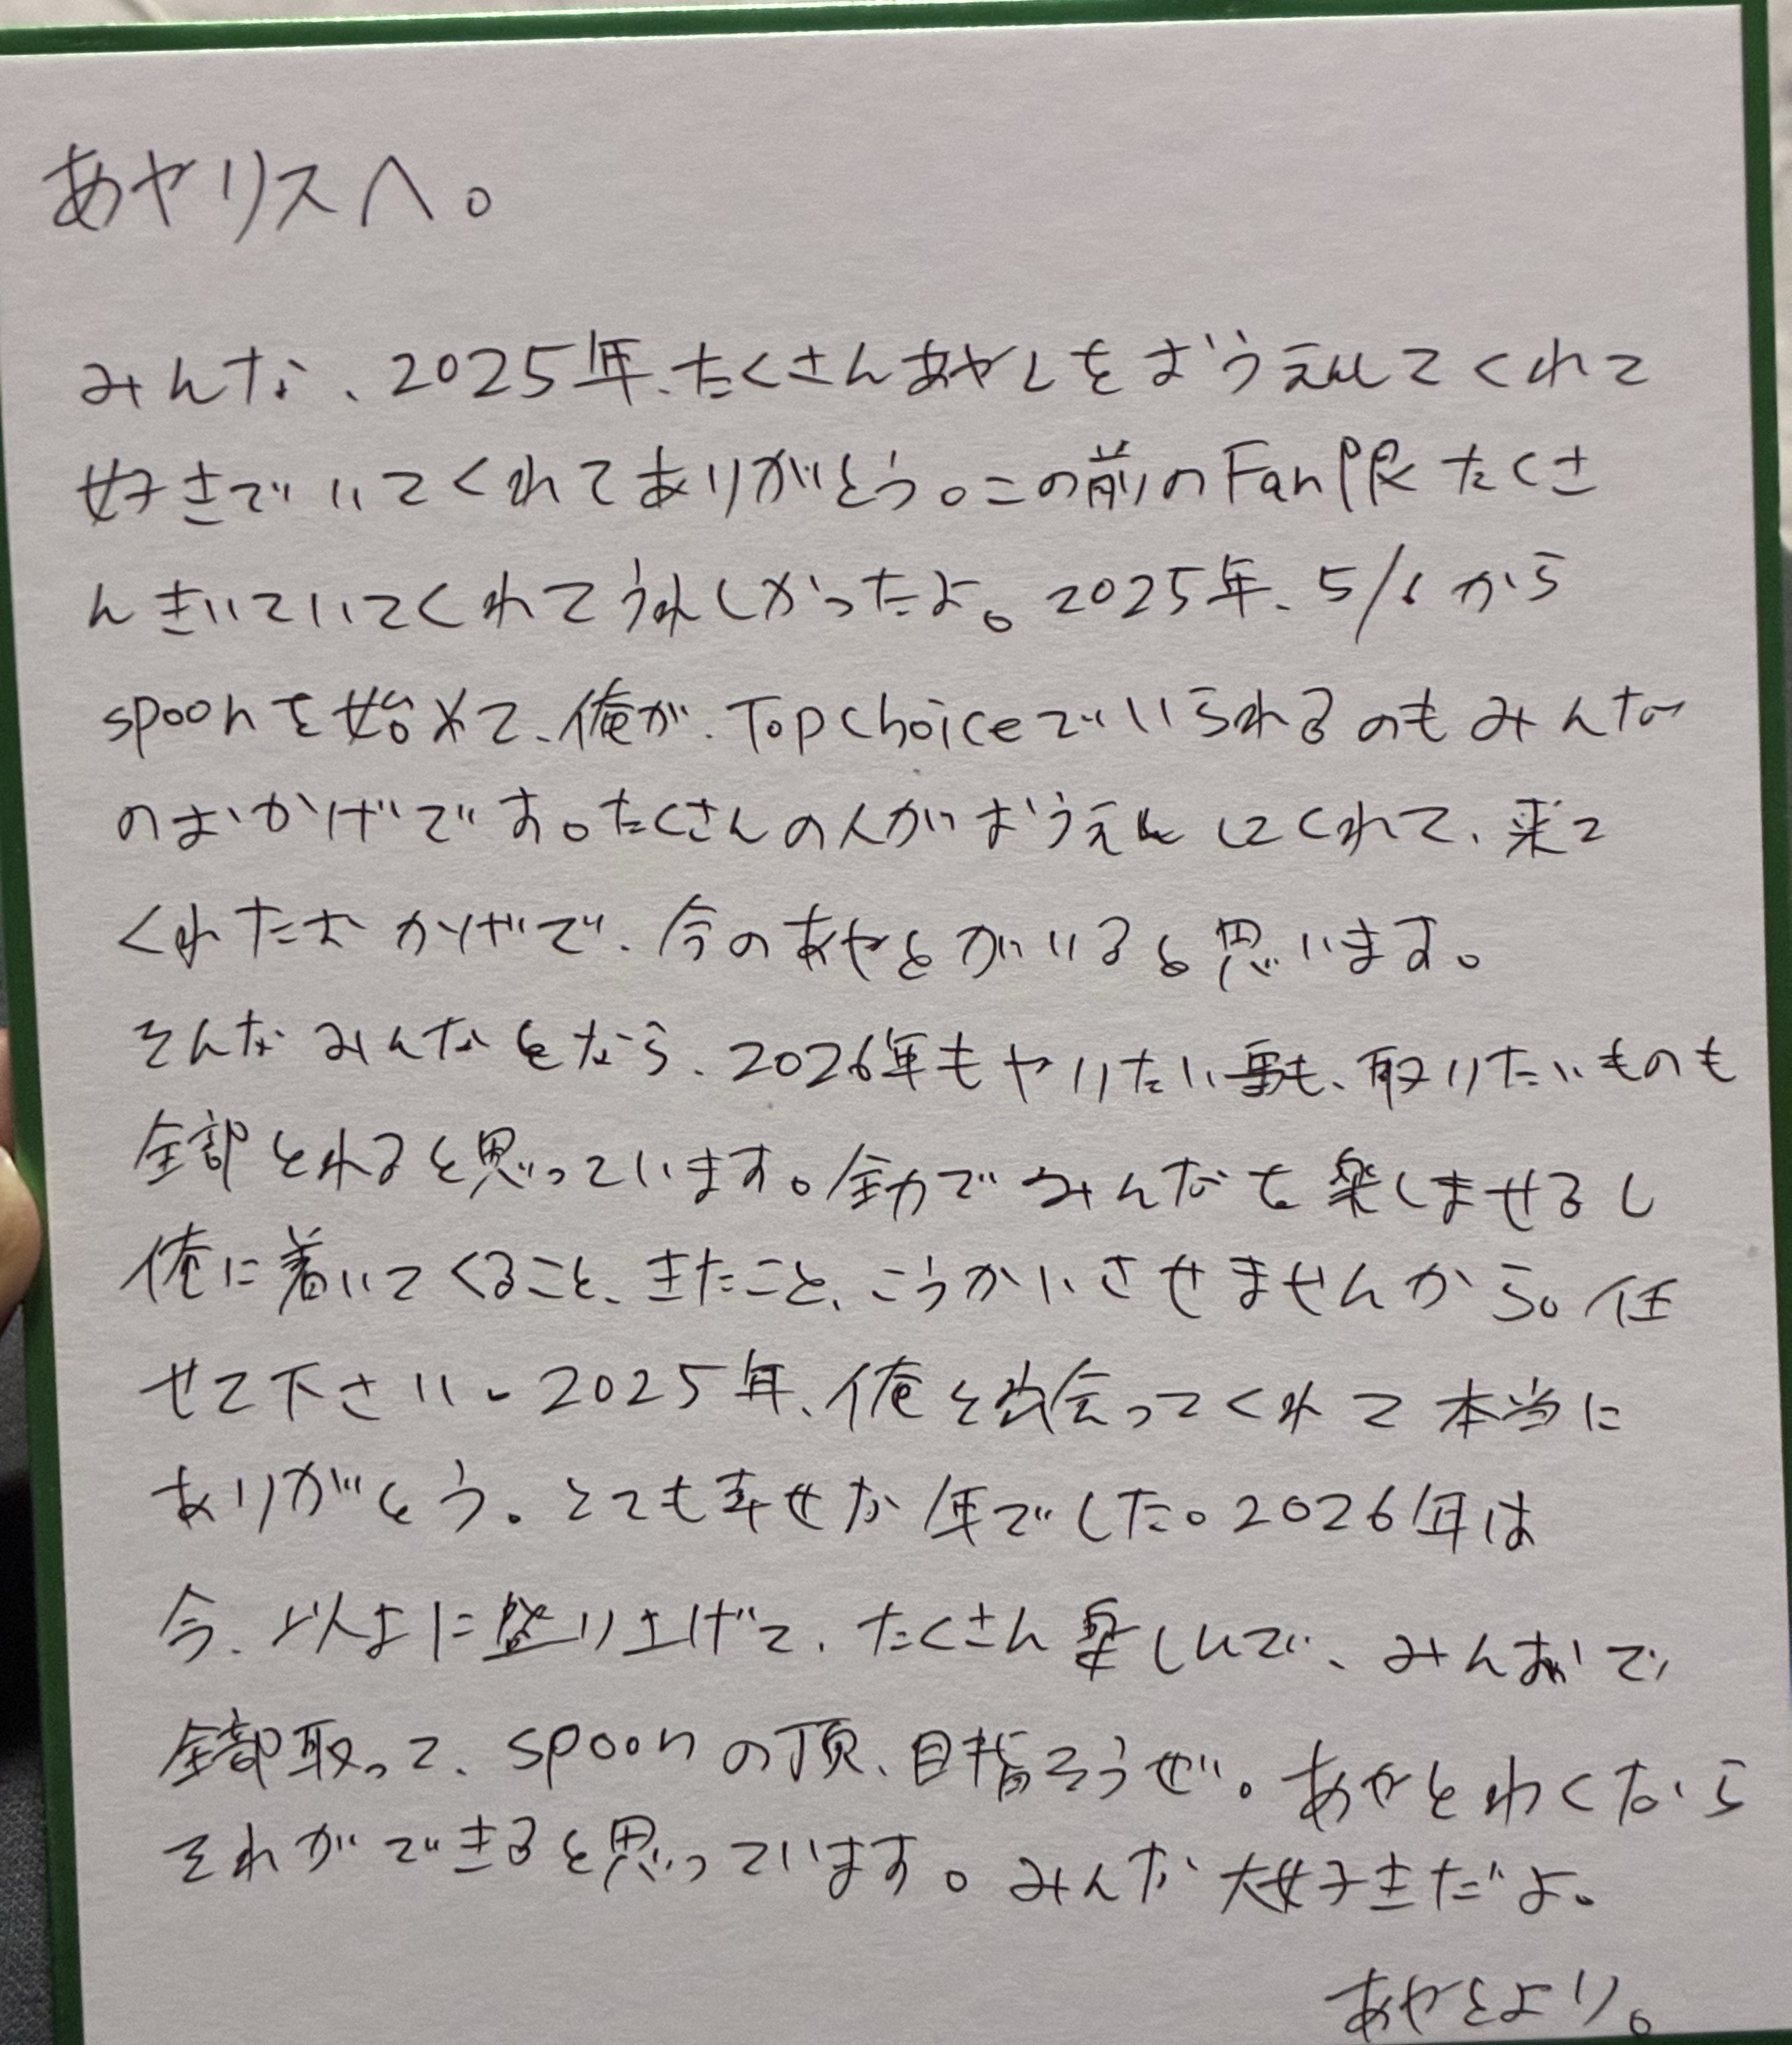 あやリスへ。
みんな、2025年、たくさんあやとをおうえんしてくれて
好きでいてくれてありがとう。この前のFan限たくさ
んきいていてくれてうれしかったよ。2025年、5/6から
spoonを始めて、俺が、Top choiceでいられるのもみんな
のおかげです。たくさんの人がおうえんしてくれて、来て
くれたおかげで、今のあやとがいると思います。
そんなみんなとなら、2026年もやりたい事も、取りたいものも
全部とれると思っています。全力でみんなを楽しませるし
俺に着いてくること、きたこと、こうかいさせませんから。任
せて下さい。2025年、俺と出会ってくれて本当に
ありがとう。とても幸せな年でした。2026年は
今、以上に盛り上げて、たくさん楽しんで、みんなで
全部取って、spoonの頂、目指そうぜ。あやとわくなら
それができると思っています。みんな大好きだよ。
あやとより。